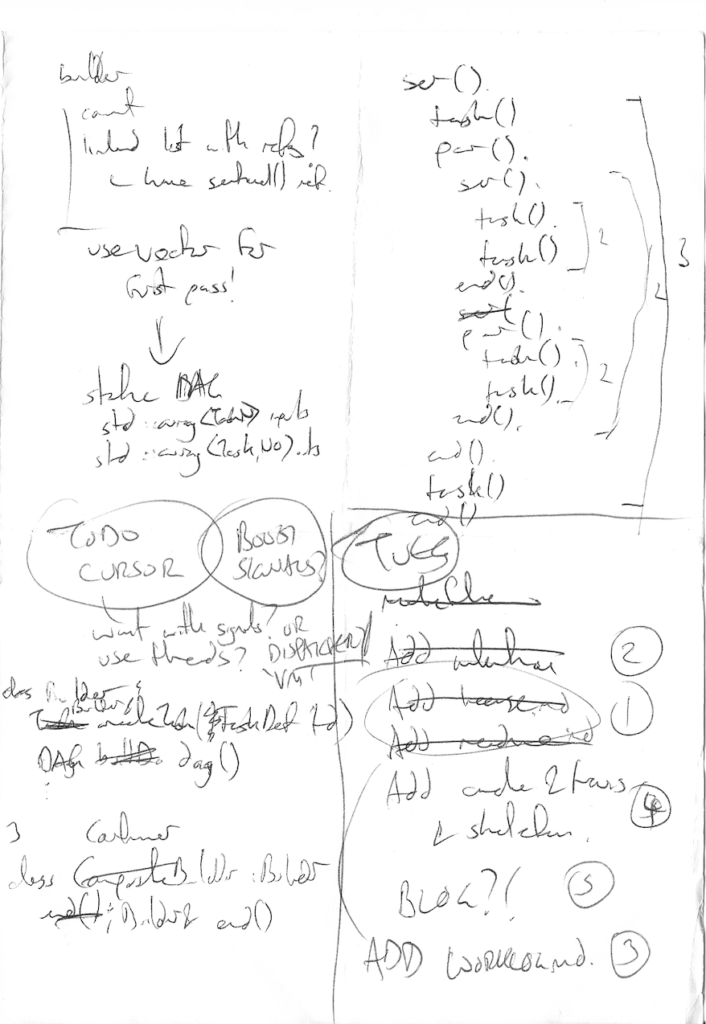 builder
count
linked list with refs?
have sentinel() ref.
use vector for
first pass!
static DAG
std::array<Task,N> inputs
std::array<Task,NO>
ser().
task()
par().
ser().
task().
task()
2
end().
ser(
par().
task().
task().
2
end().
2
3
end().
task()
end()
TODO
CURSOR
BOOST
SIGNALS?
wait with signals? OR
use threads? DISPATCHER/
"VM"
class Builder {
Builder& createTask(TaskDef td)
DAG dag()
}
class CompositeBuilder : Builder
end(); Builder& end()
TUES
makefile
Add interface
2
Add license.md
1
Add readme.md
Add code 2 travis
4
skeleton.
BLOG?!
5
ADD
3